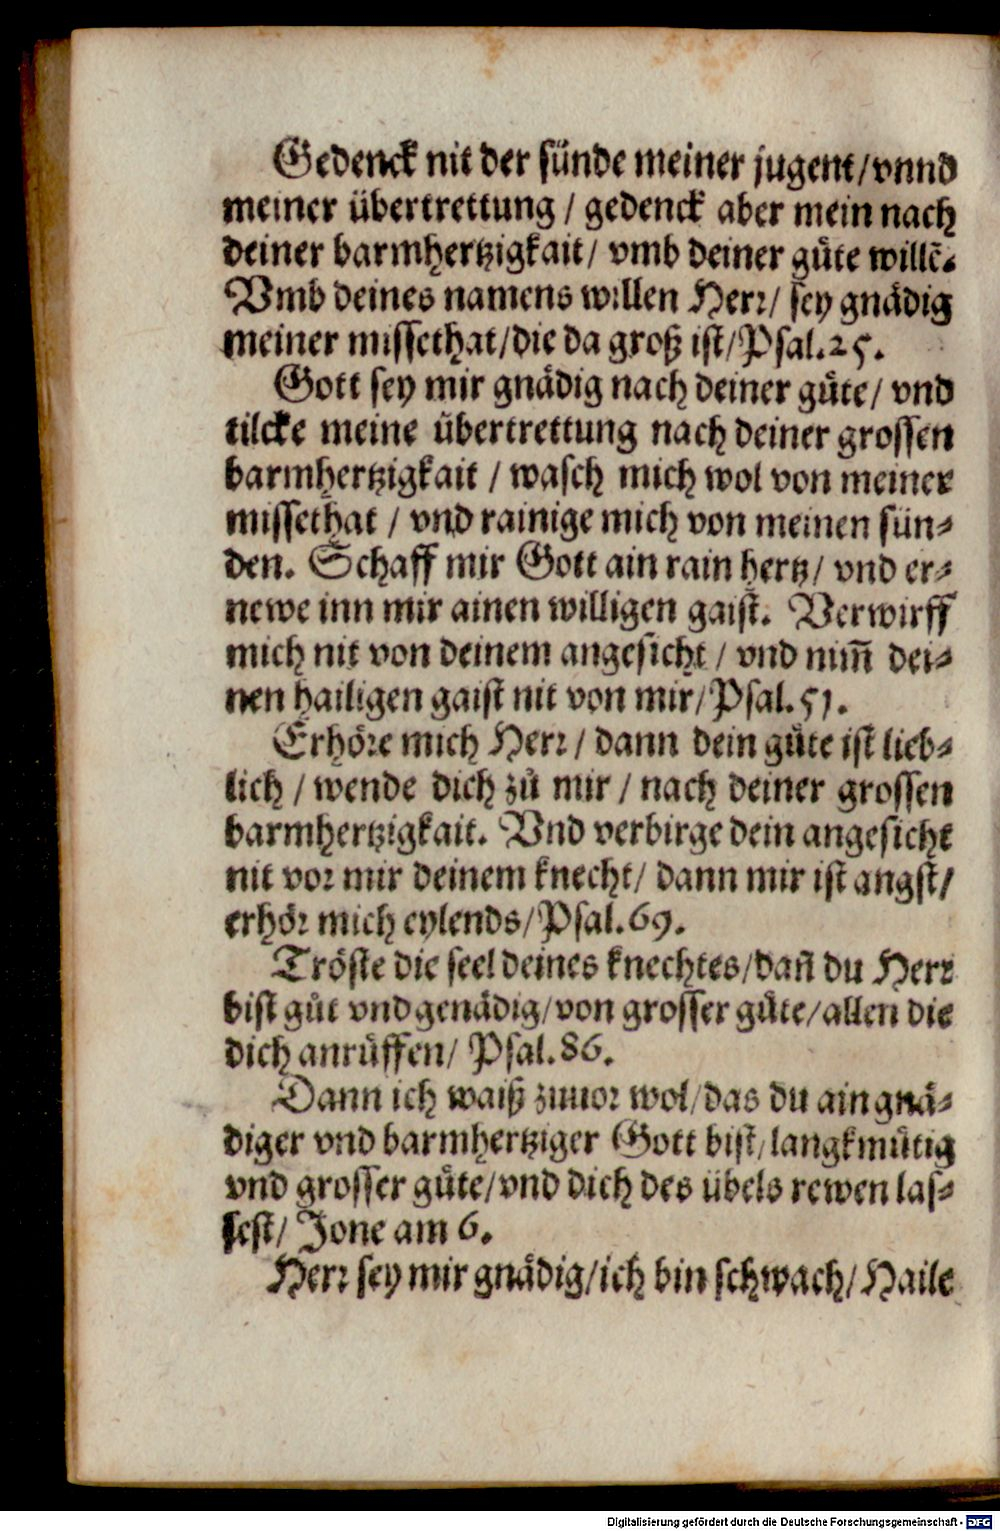 Gedenck nit der sünde meiner jugent/vnnd
meiner übertrettung / gedenck aber mein nach
deiner barmhertzigkait/ vmb deiner guͤte willẽ.
Vmb deines namens willen Herr/ sey gnaͤdig
meiner missethat/die da groß ist/Psal.25.
Gott sey mir gnaͤdig nach deiner guͤte/ vnd
tilcke meine übertrettung nach deiner grossen
barmhertzigkait / wasch mich wol von meiner
missethat / vnd rainige mich von meinen sün⸗
den. Schaff mir Gott ain rain hertz/ vnd er⸗
newe inn mir ainen willigen gaist. Verwirff
mich nit von deinem angesicht / vnd nim̃ dei⸗
nen hailigen gaist nit von mir/Psal.51.
Erhoͤre mich Herr / dann dein guͤte ist lieb⸗
lich / wende dich zuͦ mir / nach deiner grossen
barmhertzigkait. Vnd verbirge dein angesicht
nit vor mir deinem knecht/ dann mir ist angst/
erhoͤr mich eylends/Psal.69.
Troͤste die seel deines knechtes/dañ du Herr
bist guͦt vnd genaͤdig/von grosser guͤte/allen die
dich anruͤffen/ Psal.86.
Dann ich waiß zuuor wol/das du ain gnaͤ⸗
diger vnd barmhertziger Gott bist/langkmuͤtig
vnd grosser guͤte/vnd dich des übels rewen las⸗
sest/ Jone am 6.
Herr sey mir gnaͤdig/ich bin schwach/Haile
Digitalisierung gefördert durch die Deutsche Forschungsgemeinschaft - DFG